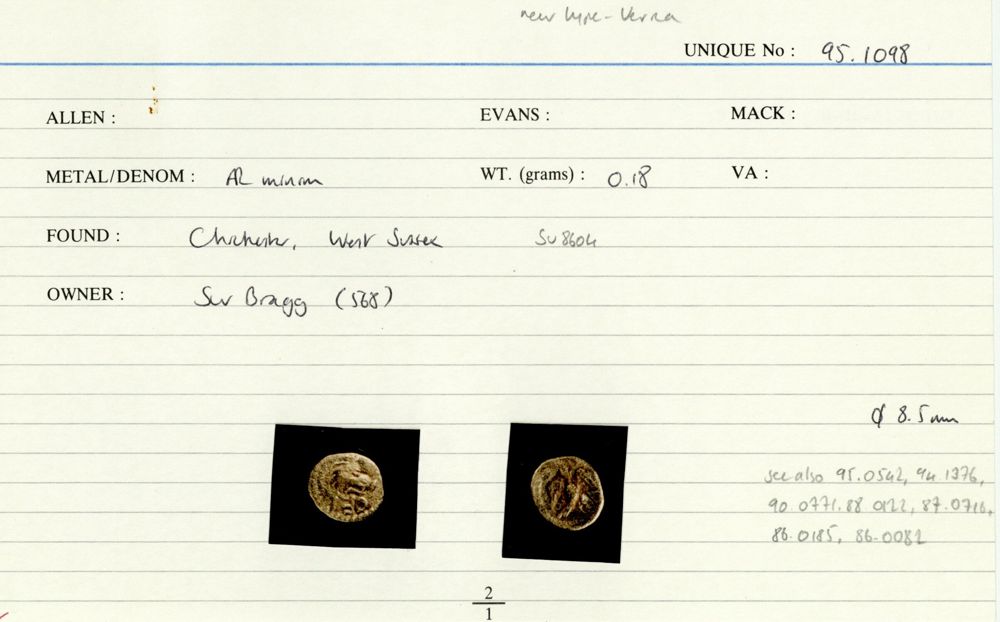 new type - Verica
UNIQUE No : 95.1098
ALLEN : EVANS : MACK :
METAL/DENOM : AR minim WT. (grams) : 0.18 VA :
FOUND : Chichester, West Sussex SU8604
OWNER : Bragg (568)
ϕ 8.5mm
see also 95.0542, 94.1376,
90.0771, 88.0122, 87.0716,
86.0185, 86.0082
2
1